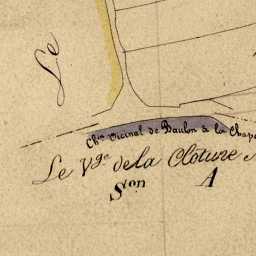 Le
Ch.in Vicinal de Baulon à la Chap
Le V.ge de la Clôture
S.on A